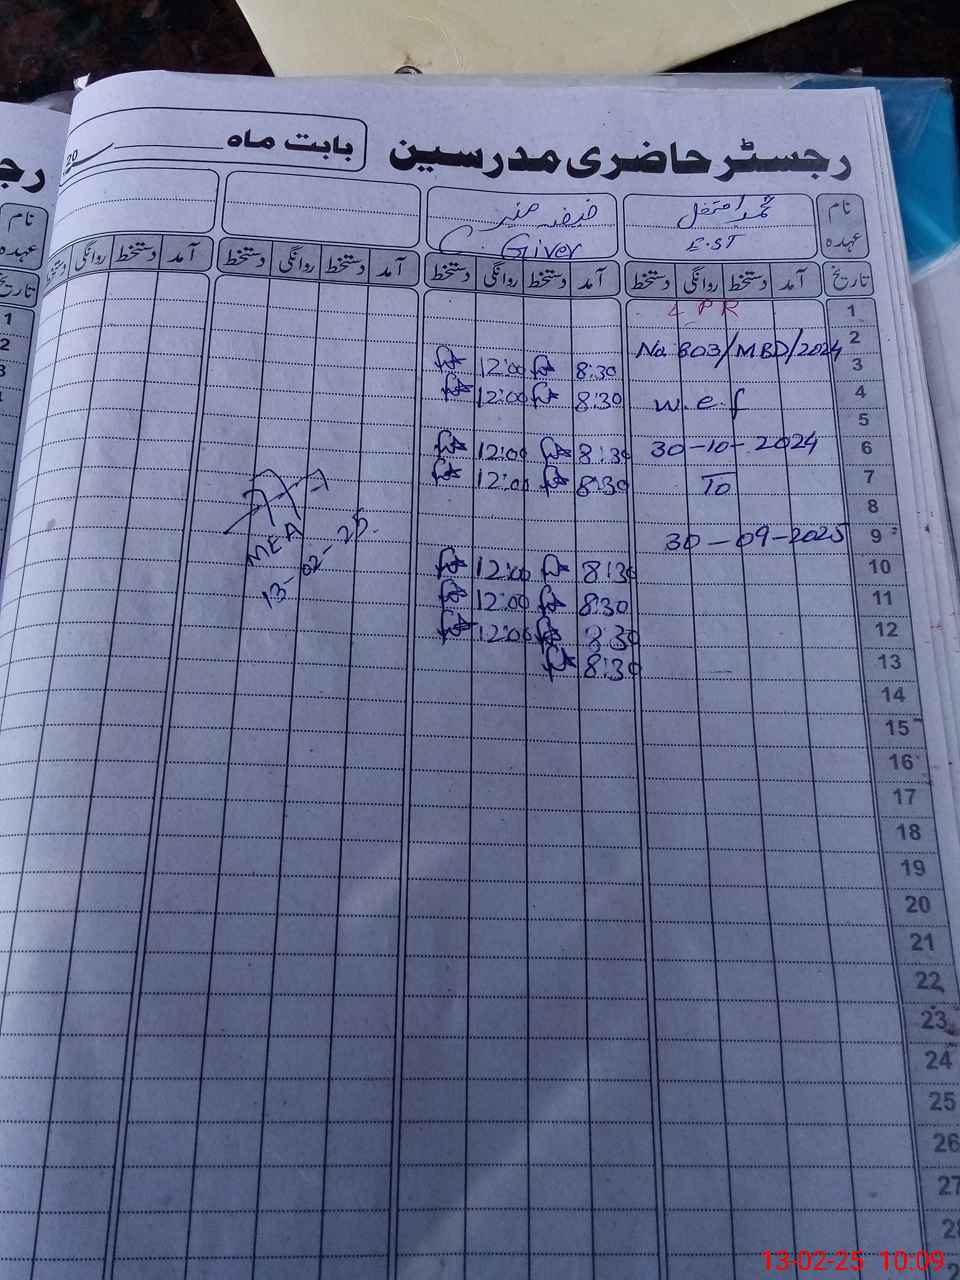 رجسٹر حاضری مدرسین
بابت ماہ 20
رجـ
نام
محمد
عہدہ
E.ST
C. Giver
نام
عہدہ
تاریخ آمد دستخط روانگی دستخط آمد دستخط روانگی دستخط آمد دستخط روانگی دستخط آمد دستخط روانگی دستخط
تاریخ
1 LPR
2 No 803/MBD/2024
3 8:30 12:00
4 w.e.f 8:30 12:00
5
6 30-10-2024 8:30 12:00
7 To 8:30 12:00
8
9 30-09-2025
10 8:30 12:00
11 8:30 12:00
12 8:30 12:00
13 8:30
MEA
13-02-25
14
15
16
17
18
19
20
21
22
23
24
25
26
27
28
1
2
3
4
13-02-25 10:09